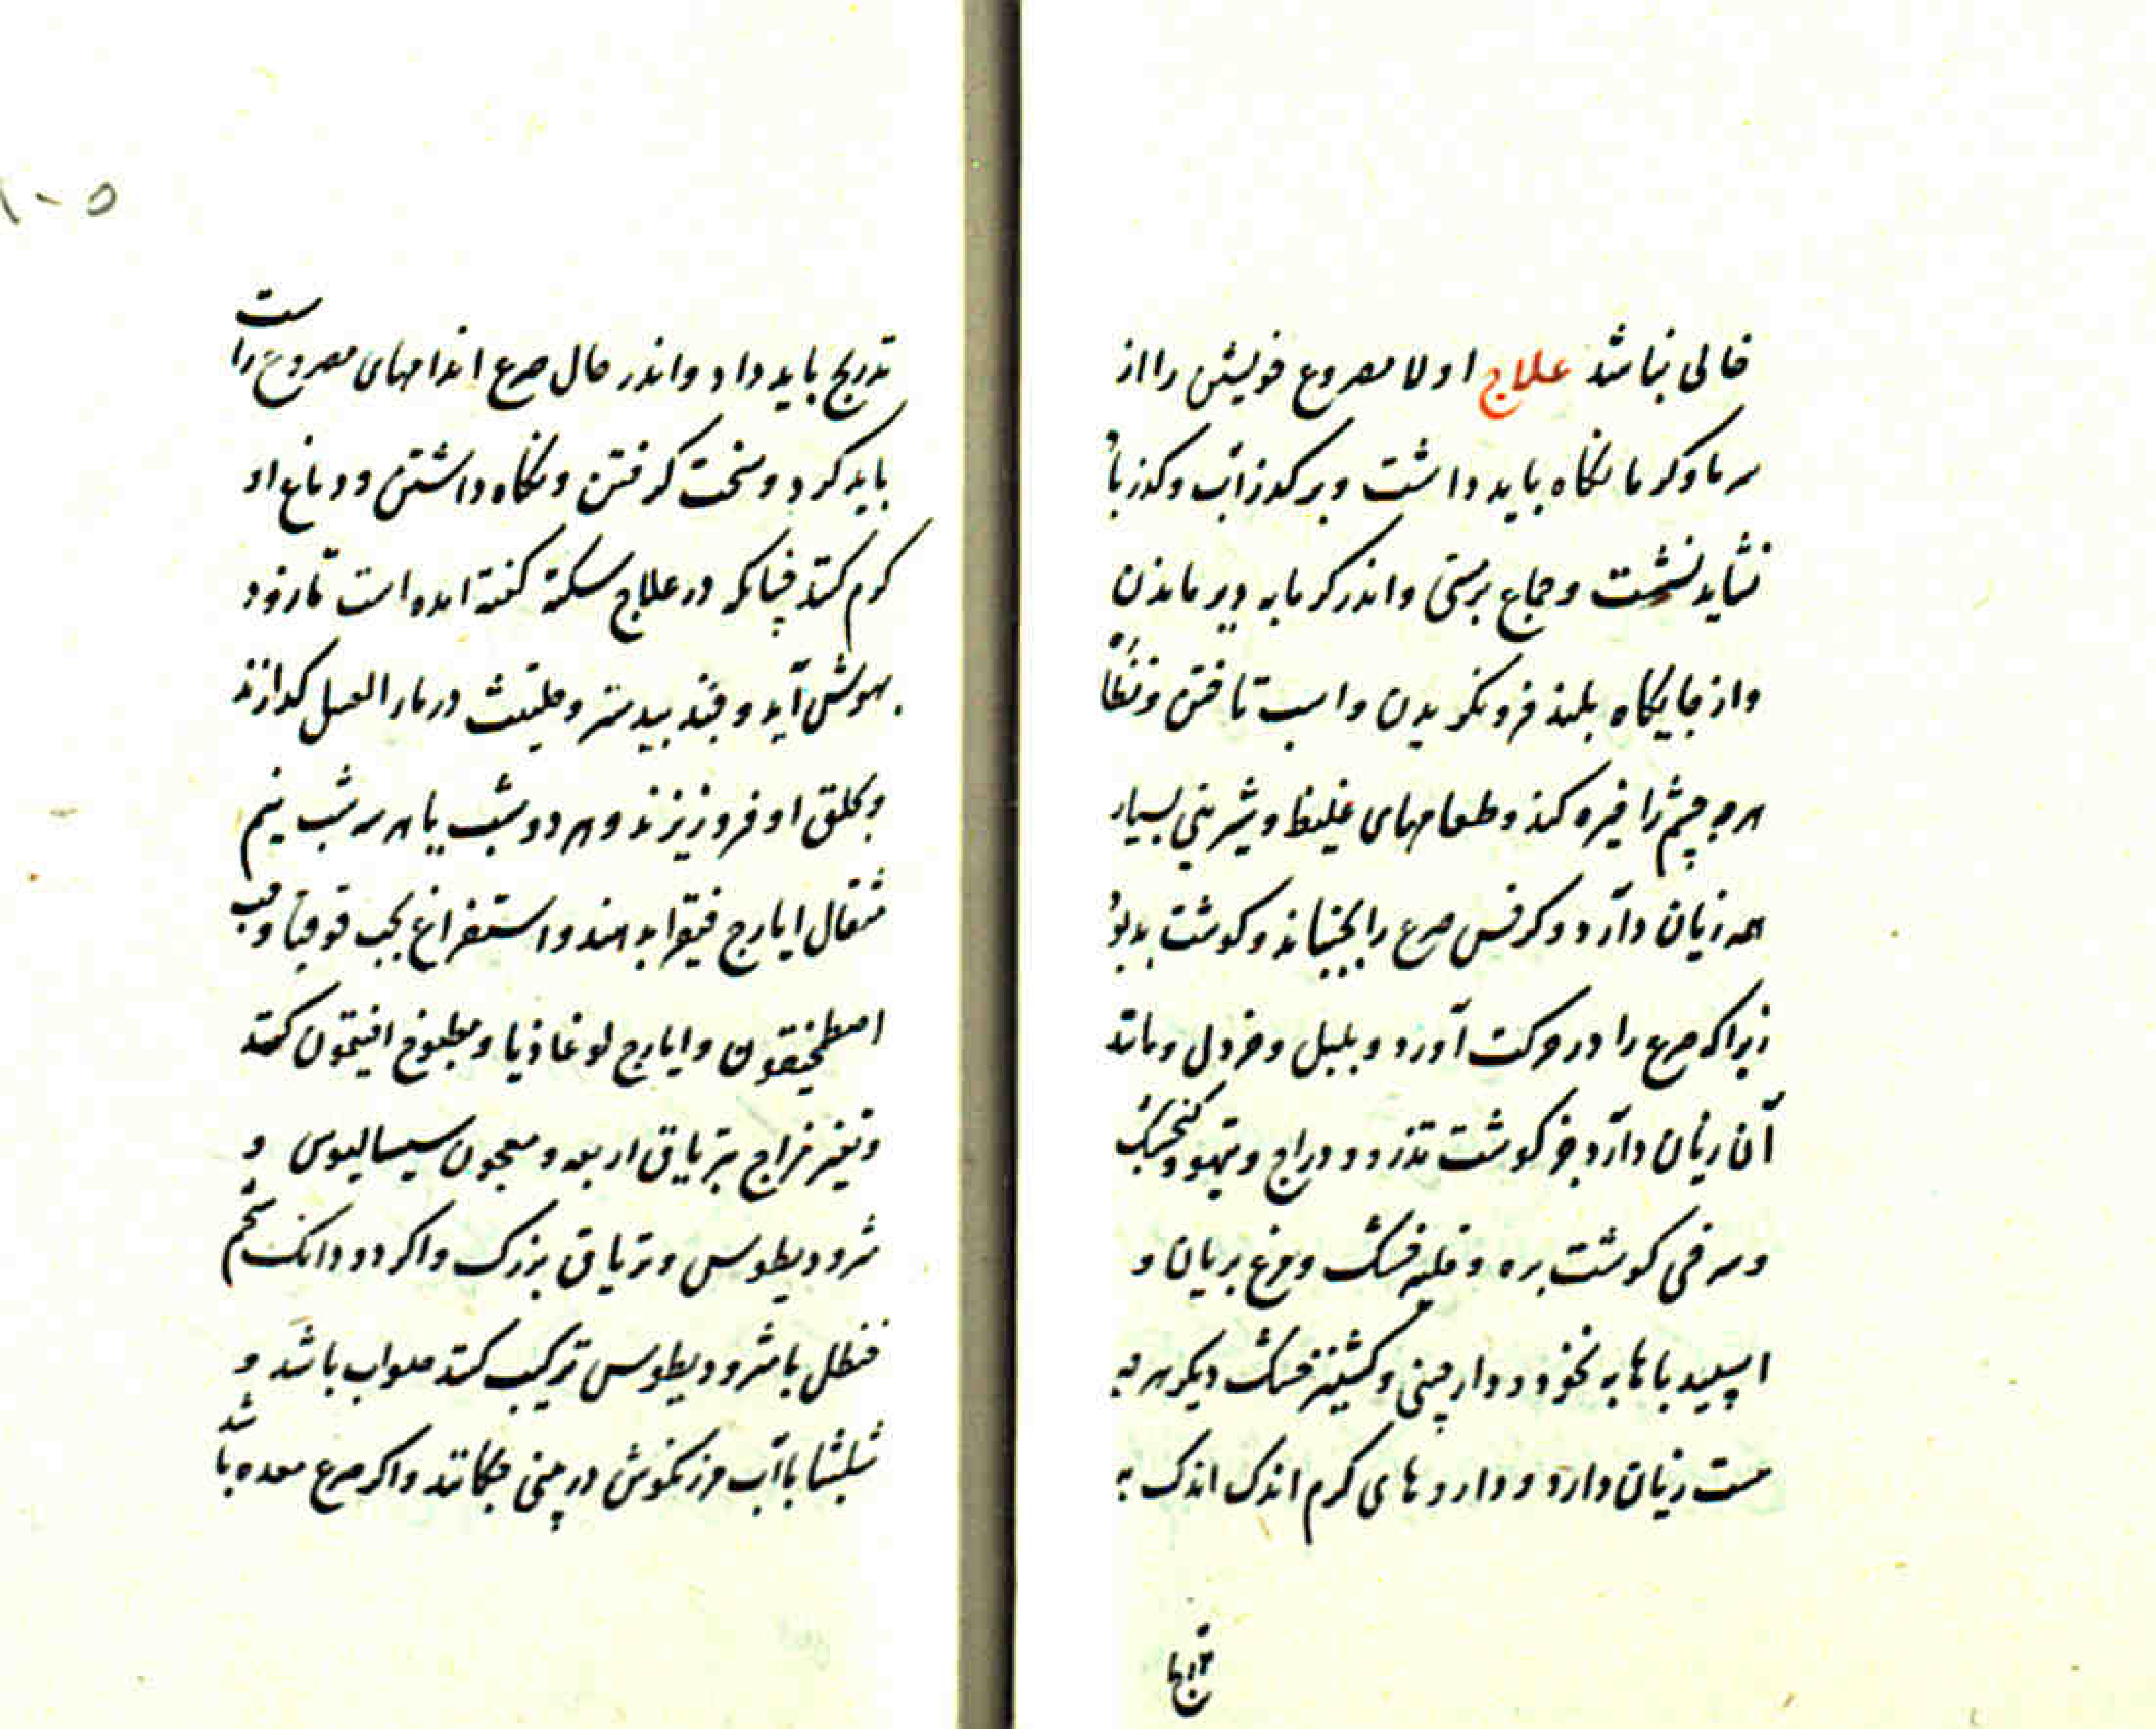 خالی نباشد علاج اولا مصروع خویش را از
سرما و کرما نکاه باید داشت و بر کذر آب و کذر باد
نشاید نشست و جماع برستی و اندر کرمابه دیر ماندن
و از جایکاه بلند فرو نکریدن و اسب تاختن و نظاره
هرچه چشم را خیره کند و طعامهای غلیظ و شیرینی بسیار
همه زیان دارد و کرفس صرع را بجنباند و کوشت بد بود
زیرا که صرع را در حرکت آورد و بلبل و خردل و مانند
آن زیان دارد جز کوشت تذرو و دراج و تیهو و کنجشک
و سرخی کوشت بره و قلیه خشک و مرغ بریان و
اسپیدباها به نخود و دارچینی و کشنیز خشک دیکر هرچه
هست زیان دارد و داروهای کرم اندک اندک به
تدریج
۱۰۵
تدریج باید داد و اندر حال صرع اندامهای مصروع راست
باید کرد و سخت کرفتن و نکاه داشتن و دماغ او
کرم کنند چنانکه در علاج سکته کفته امده است تا زود
بهوش آید و جند بیدستر و حلتیت در ماء العسل کدازند
و بحلق او فرو ریزند و هر دو شب یا هر سه شب نیم
مثقال ایارج فیقرا بدهند و استفراغ بحب قوقیا و حب
اصطمخیقون و ایارج لوغاذیا و مطبوخ افتیمون کنند
و تغیر مزاج بتریاق اربعه و معجون سیسالیوس و
مثرودیطوس و تریاق بزرک و اکر دو دانک شحم
حنظل با مثرودیطوس ترکیب کنند صواب باشد و
شلیثا با آب مرزنکوش در بینی چکانند و اکر صرع معده باشد